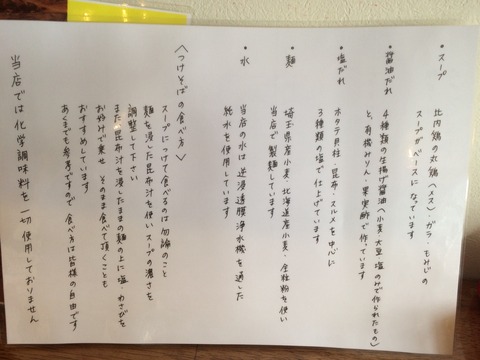 • スープ
比内鶏の丸鶏(メス)・ガラ・もみじの
スープがベースになっています
• 醤油だれ
4種類の生揚げ醤油(小麦・大豆・塩のみで作られたもの)
と、有機みりん・果実酢で作っています
• 塩だれ
ホタテ貝柱・昆布・スルメを中心に
3種類の塩で仕上げています
• 麺
埼玉県産小麦・北海道産小麦・全粒粉を使い
当店で製麺しています
• 水
当店の水は逆浸透膜浄水機を通した
純水を使用しています
〈つけそばの食べ方〉
スープにつけて食べるのは勿論のこと
麺を浸した昆布汁を使いスープの濃さを
調整して下さい
また昆布汁を浸したままの麺の上に塩・わさびを
お好みで乗せ そのまま食べて頂くことも
おすすめしています
あくまでも参考ですので食べ方は皆様の自由です
当店では化学調味料を一切使用しておりません